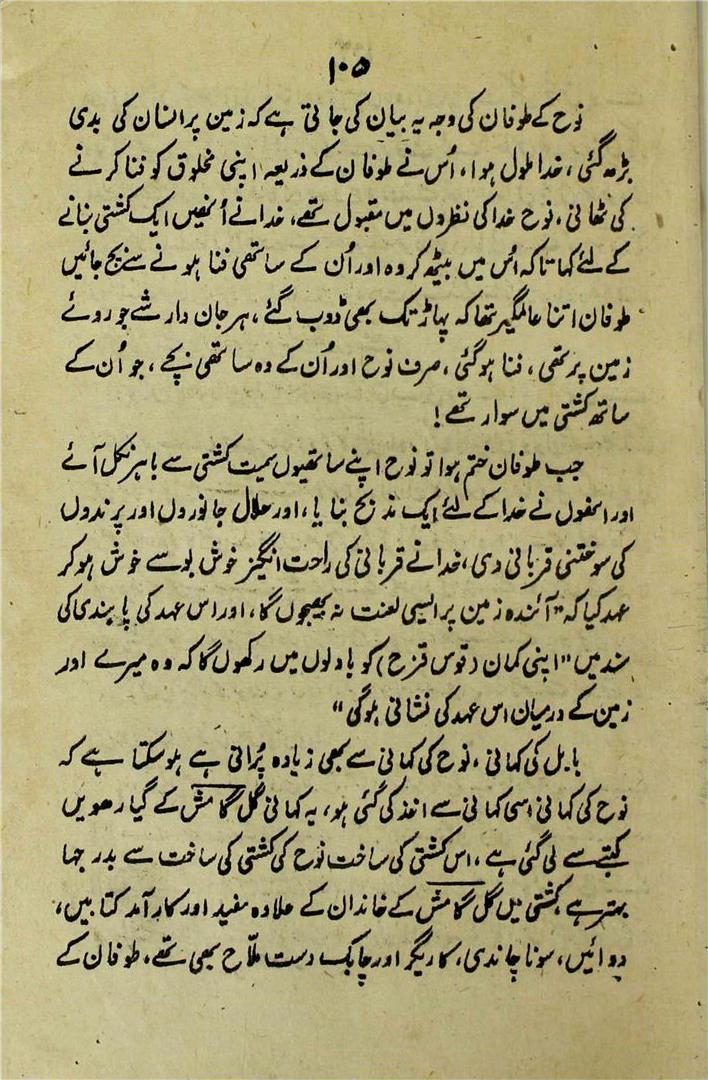 ۱۰۵
نوح کے طوفان کی وجہ یہ بیان کی جاتی ہے کہ زمین پر انسان کی بدی
بڑھ گئی، خدا ملول ہوا، اُس نے طوفان کے ذریعہ اپنی مخلوق کو فنا کرنے
کی ٹھانی، نوح خدا کی نظروں میں مقبول تھے، خدا نے اُنھیں ایک کشتی بنانے
کے لئے کہا تاکہ اُس میں بیٹھ کر وہ اور اُن کے ساتھی فنا ہونے سے بچ جائیں
طوفان اتنا عالمگیر تھا کہ پہاڑ تک بھی ڈوب گئے، ہر جان دار شے جو روئے
زمین پر تھی، فنا ہوگئی، صرف نوح اور اُن کے وہ ساتھی بچے، جو اُن کے
ساتھ کشتی میں سوار تھے!
جب طوفان ختم ہوا تو نوح اپنے ساتھیوں سمیت کشتی سے باہر نکل آئے
اور انھوں نے خدا کے لئے ایک مذبح بنایا، اور حلال جانوروں اور پرندوں
کی سوختنی قربانی دی، خدا نے قربانی کی راحت انگیز خوش بو سے خوش ہوکر
عہد کیا کہ "آئندہ زمین پر ایسی لعنت نہ بھیجوں گا، اور اس عہد کی پابندی کی
سند میں "اپنی کمان (قوس قزح) کو بادلوں میں رکھوں گا کہ وہ میرے اور
زمین کے درمیان اس عہد کی نشانی ہوگی"
بابل کی کہانی، نوح کی کہانی سے بھی زیادہ پُرانی ہے ہوسکتا ہے کہ
نوح کی کہانی اسی کہانی سے اخذ کی گئی ہو، یہ کہانی گل گامش کے گیارھویں
کتبے سے لی گئی ہے، اس کشتی کی ساخت نوح کی کشتی کی ساخت سے بدرجہا
بہتر ہے کشتی میں گل گامش کے خاندان کے علاوہ مفید اور کارآمد کتابیں،
دوائیں، سونا چاندی، کاریگر اور چابک دست ملّاح بھی تھے، طوفان کے